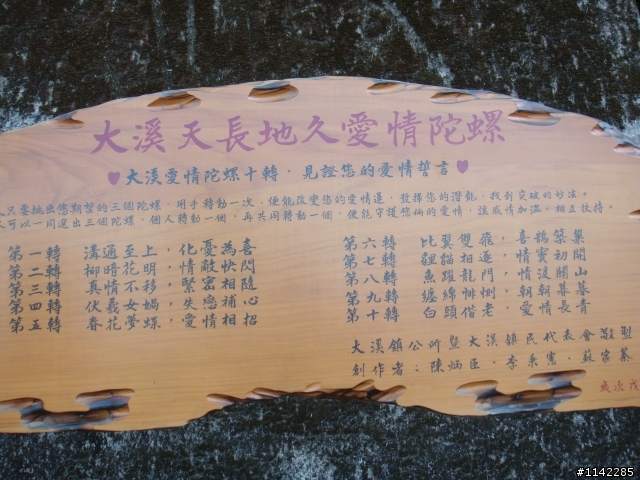 大溪天長地久愛情陀螺
♥大溪愛情陀螺十轉．見證您的愛情誓言♥
人只要挑出您期望的三個陀螺，用手轉動一次，便能改變您的愛情運，發揮您的潛能，找到突破的妙法。
可以一同選出三個陀螺，個人轉動一個，再共同轉動一個，便能守護您倆的愛情，讓感情加溫，相互扶持。
第一轉 溝通至上，化憂為喜
第二轉 柳暗花明，情敵快閃
第三轉 真情不移，緊密相隨
第四轉 伏羲女媧，失戀補心
第五轉 春花夢蝶，愛情相招
第六轉 比翼雙飛，喜鵲築巢
第七轉 貍貓相遇，情竇初開
第八轉 魚躍龍門，情渡關山
第九轉 纏綿悱惻，朝朝暮暮
第十轉 白頭偕老，愛情長青
大溪鎮公所暨大溪鎮民代表會敬盟
創作者：陳炳臣、李秉憲、蘇家蓁
歲次戊
#1142285